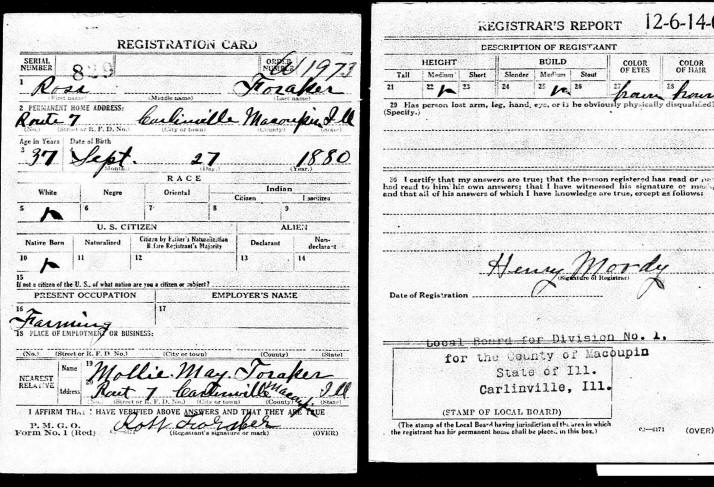 REGISTRATION CARD
SERIAL NUMBER 829 ORDER NUMBER 1973
1 Ross Foraker
(First name) (Middle name) (Last name)
2 PERMANENT HOME ADDRESS:
Route 7 Carlinville Macoupin Ill
(No.) (Street or R. F. D. No.) (City or town) (County) (State)
Age in Years Date of Birth
3 37 4 Sept. 27 1880
(Month.) (Day.) (Year.)
RACE
White Negro Oriental Indian
Citizen Noncitizen
5 6 7 8 9
U. S. CITIZEN ALIEN
Native Born Naturalized Citizen by Father's Naturalization Before Registrant's Majority Declarant Non-declarant
10 11 12 13 14
15
If not a citizen of the U. S., of what nation are you a citizen or subject?
PRESENT OCCUPATION EMPLOYER'S NAME
16 Farming 17
18 PLACE OF EMPLOYMENT OR BUSINESS:
(No.) (Street or R. F. D. No.) (City or town) (County) (State)
NEAREST RELATIVE Name 19 Mollie May Foraker
Address 20 Rout 7 Carlinville Macoupin Ill
(No.) (Street or R. F. D. No.) (City or town) (County) (State)
I AFFIRM THAT I HAVE VERIFIED ABOVE ANSWERS AND THAT THEY ARE TRUE
P. M. G. O.
Form No. 1 (Red) Ross Foraker
(Registrant's signature or mark) (OVER)
REGISTRAR'S REPORT 12-6-14-
DESCRIPTION OF REGISTRANT
HEIGHT BUILD COLOR OF EYES COLOR OF HAIR
Tall Medium Short Slender Medium Stout
21 22 23 24 25 26 27 brown 28 brown
29 Has person lost arm, leg, hand, eye, or is he obviously physically disqualified?
(Specify.)
30 I certify that my answers are true; that the person registered has read or
had read to him his own answers; that I have witnessed his signature or mark,
and that all of his answers of which I have knowledge are true, except as follows:
Henry Moody
(Signature of Registrar)
Date of Registration
Local Board for Division No. 1,
for the County of Macoupin
State of Ill.
Carlinville, Ill.
(STAMP OF LOCAL BOARD)
(The stamp of the Local Board having jurisdiction of the area in which
the registrant has his permanent home shall be placed in this box.)
(OVER)